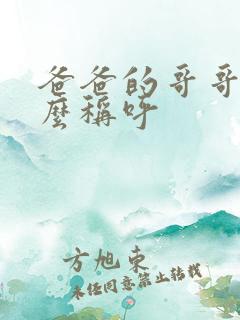 爸爸的哥哥
麽稱呼
方旭東
未经同意禁止转载